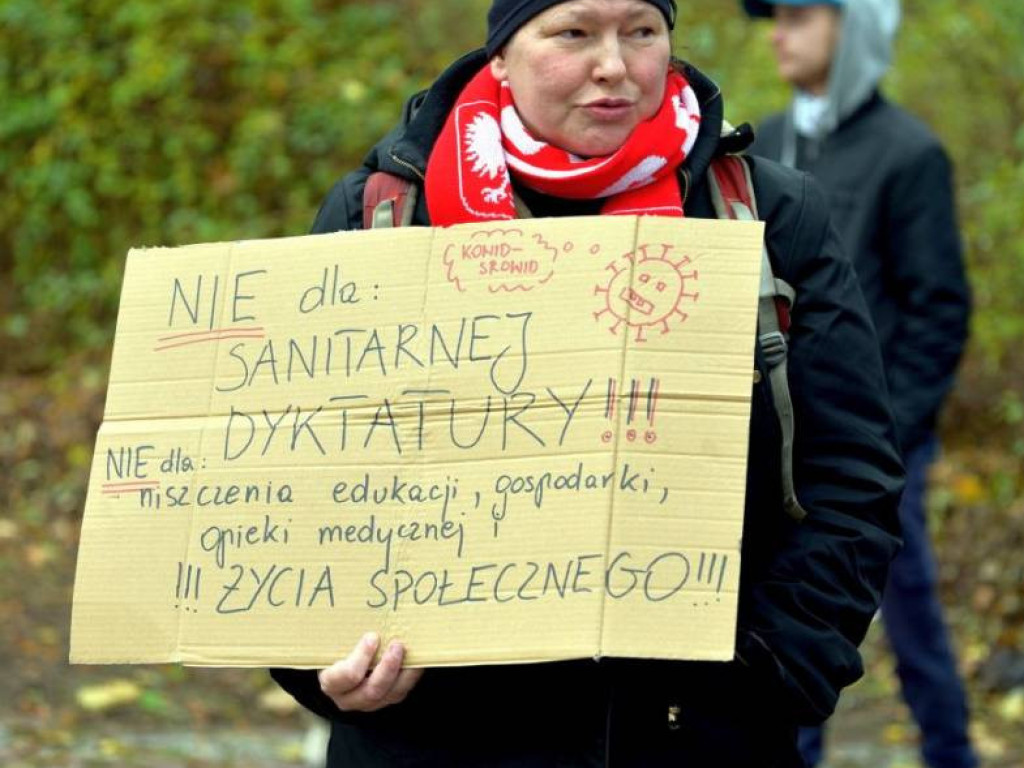 KONID-
SROWID
NIE dla:
SANITARNEJ
DYKTATURY!!!
NIE dla:
niszczenia edukacji, gospodarki,
opieki medycznej i
!!! ŻYCIA SPOŁECZNEGO!!!